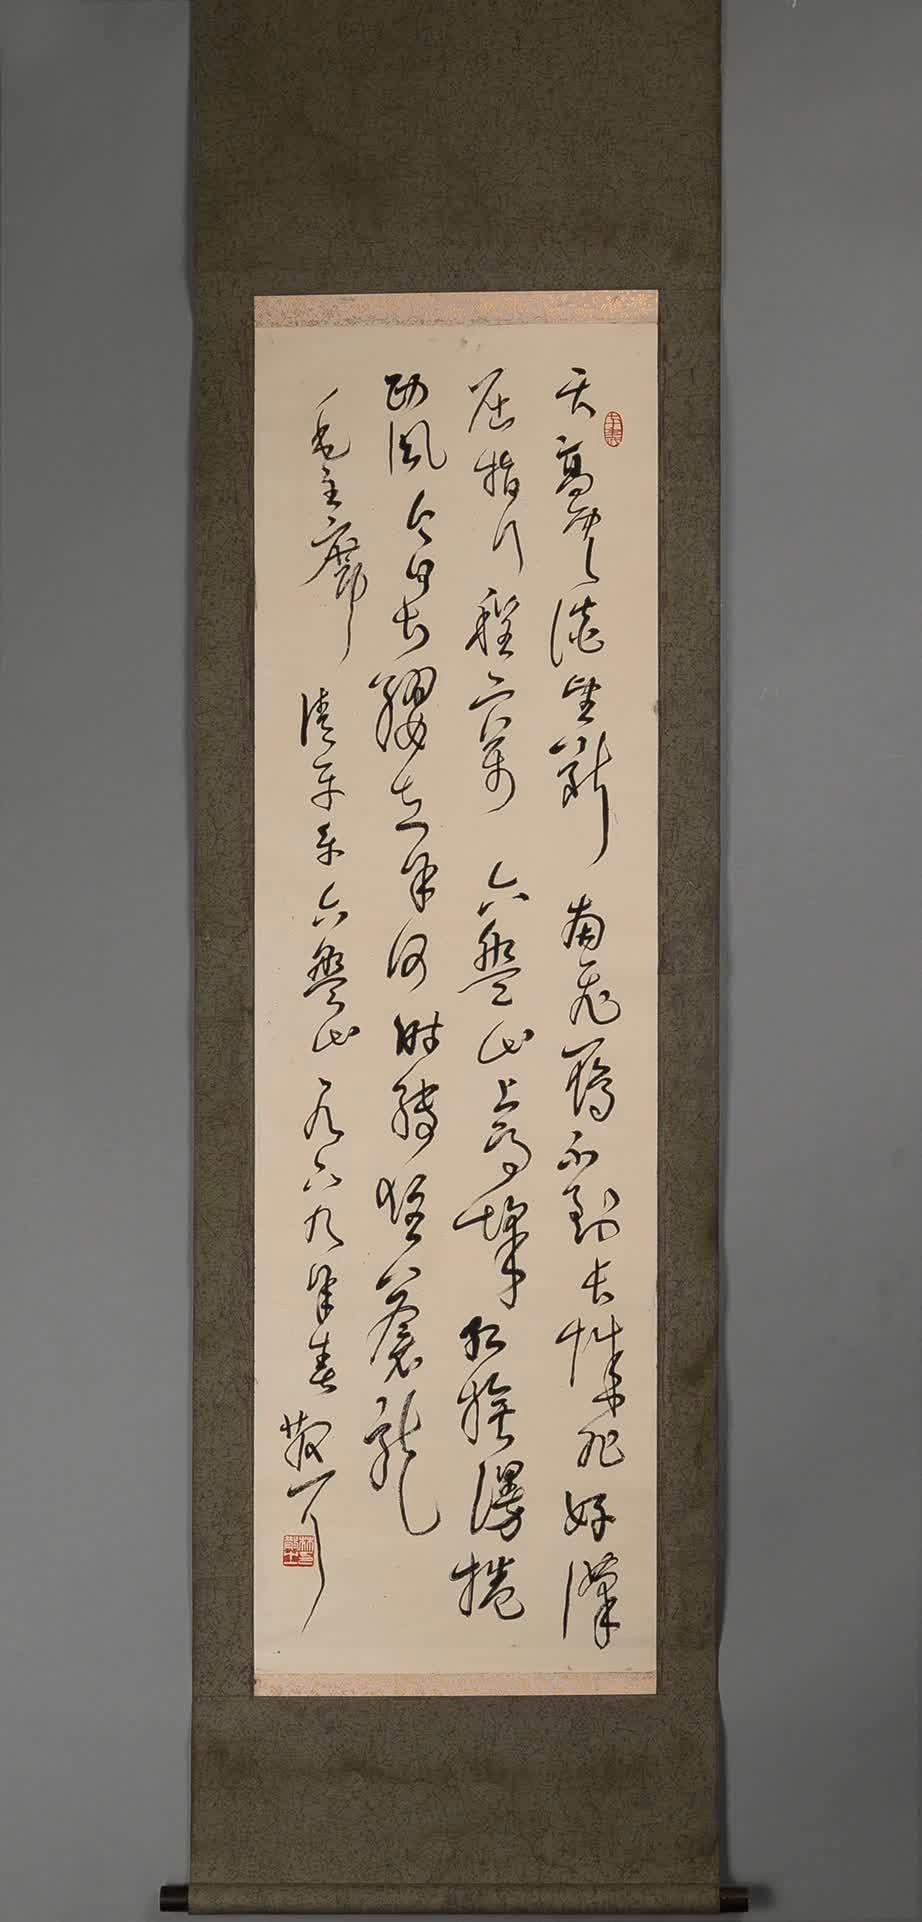 天高雲淡望斷南飛雁不到長城非好漢
屈指行程二萬六盤山上高峰紅旗漫捲
西風今日長纓在手何時縛住蒼龍
毛主席清平樂六盤山一九六九年春散耳